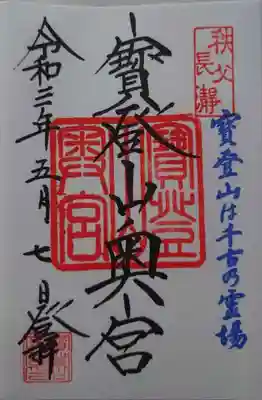 秩父
長瀞
寳登山は千古の霊場
寳登山奥宮
令和三年五月七日登拝